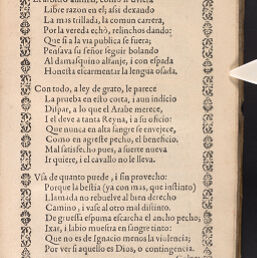 Libre razon en el; assi dexando
La mas trillada, la comun carrera,
Por la vereda echò, relinchos dando:
Que si a la via publica se fuera;
Pensava su señor seguir bolando
Al damasquino alfanje, i con espada
Honesta escarmentar la lengua osada.
Con todo, a ley de grato, le parece
La prueba en esto corta, i aun indicio
Dispar, a lo que el Arabe merece,
I el deve a tanta Reyna, i a su oficio:
Que nunca en alta sangre se envejece,
Como en agreste pecho, el beneficio.
Mal satisfecho pues, a suerte nueva
Ir quiere, i el cavallo no le lleva.
Vsa de quanto puede, i sin provecho:
Porque la bestia (ya con mas, que instinto)
Llamada no rebuelve al bien derecho
Camino, i vase al otro mal distinto.
De gruessa espuma escarcha el ancho pecho;
Ixar, i labio muestra en sangre tinto:
Que no es de Ignacio menos la violencia;
Por ver si aquello es Dios, o contingencia.